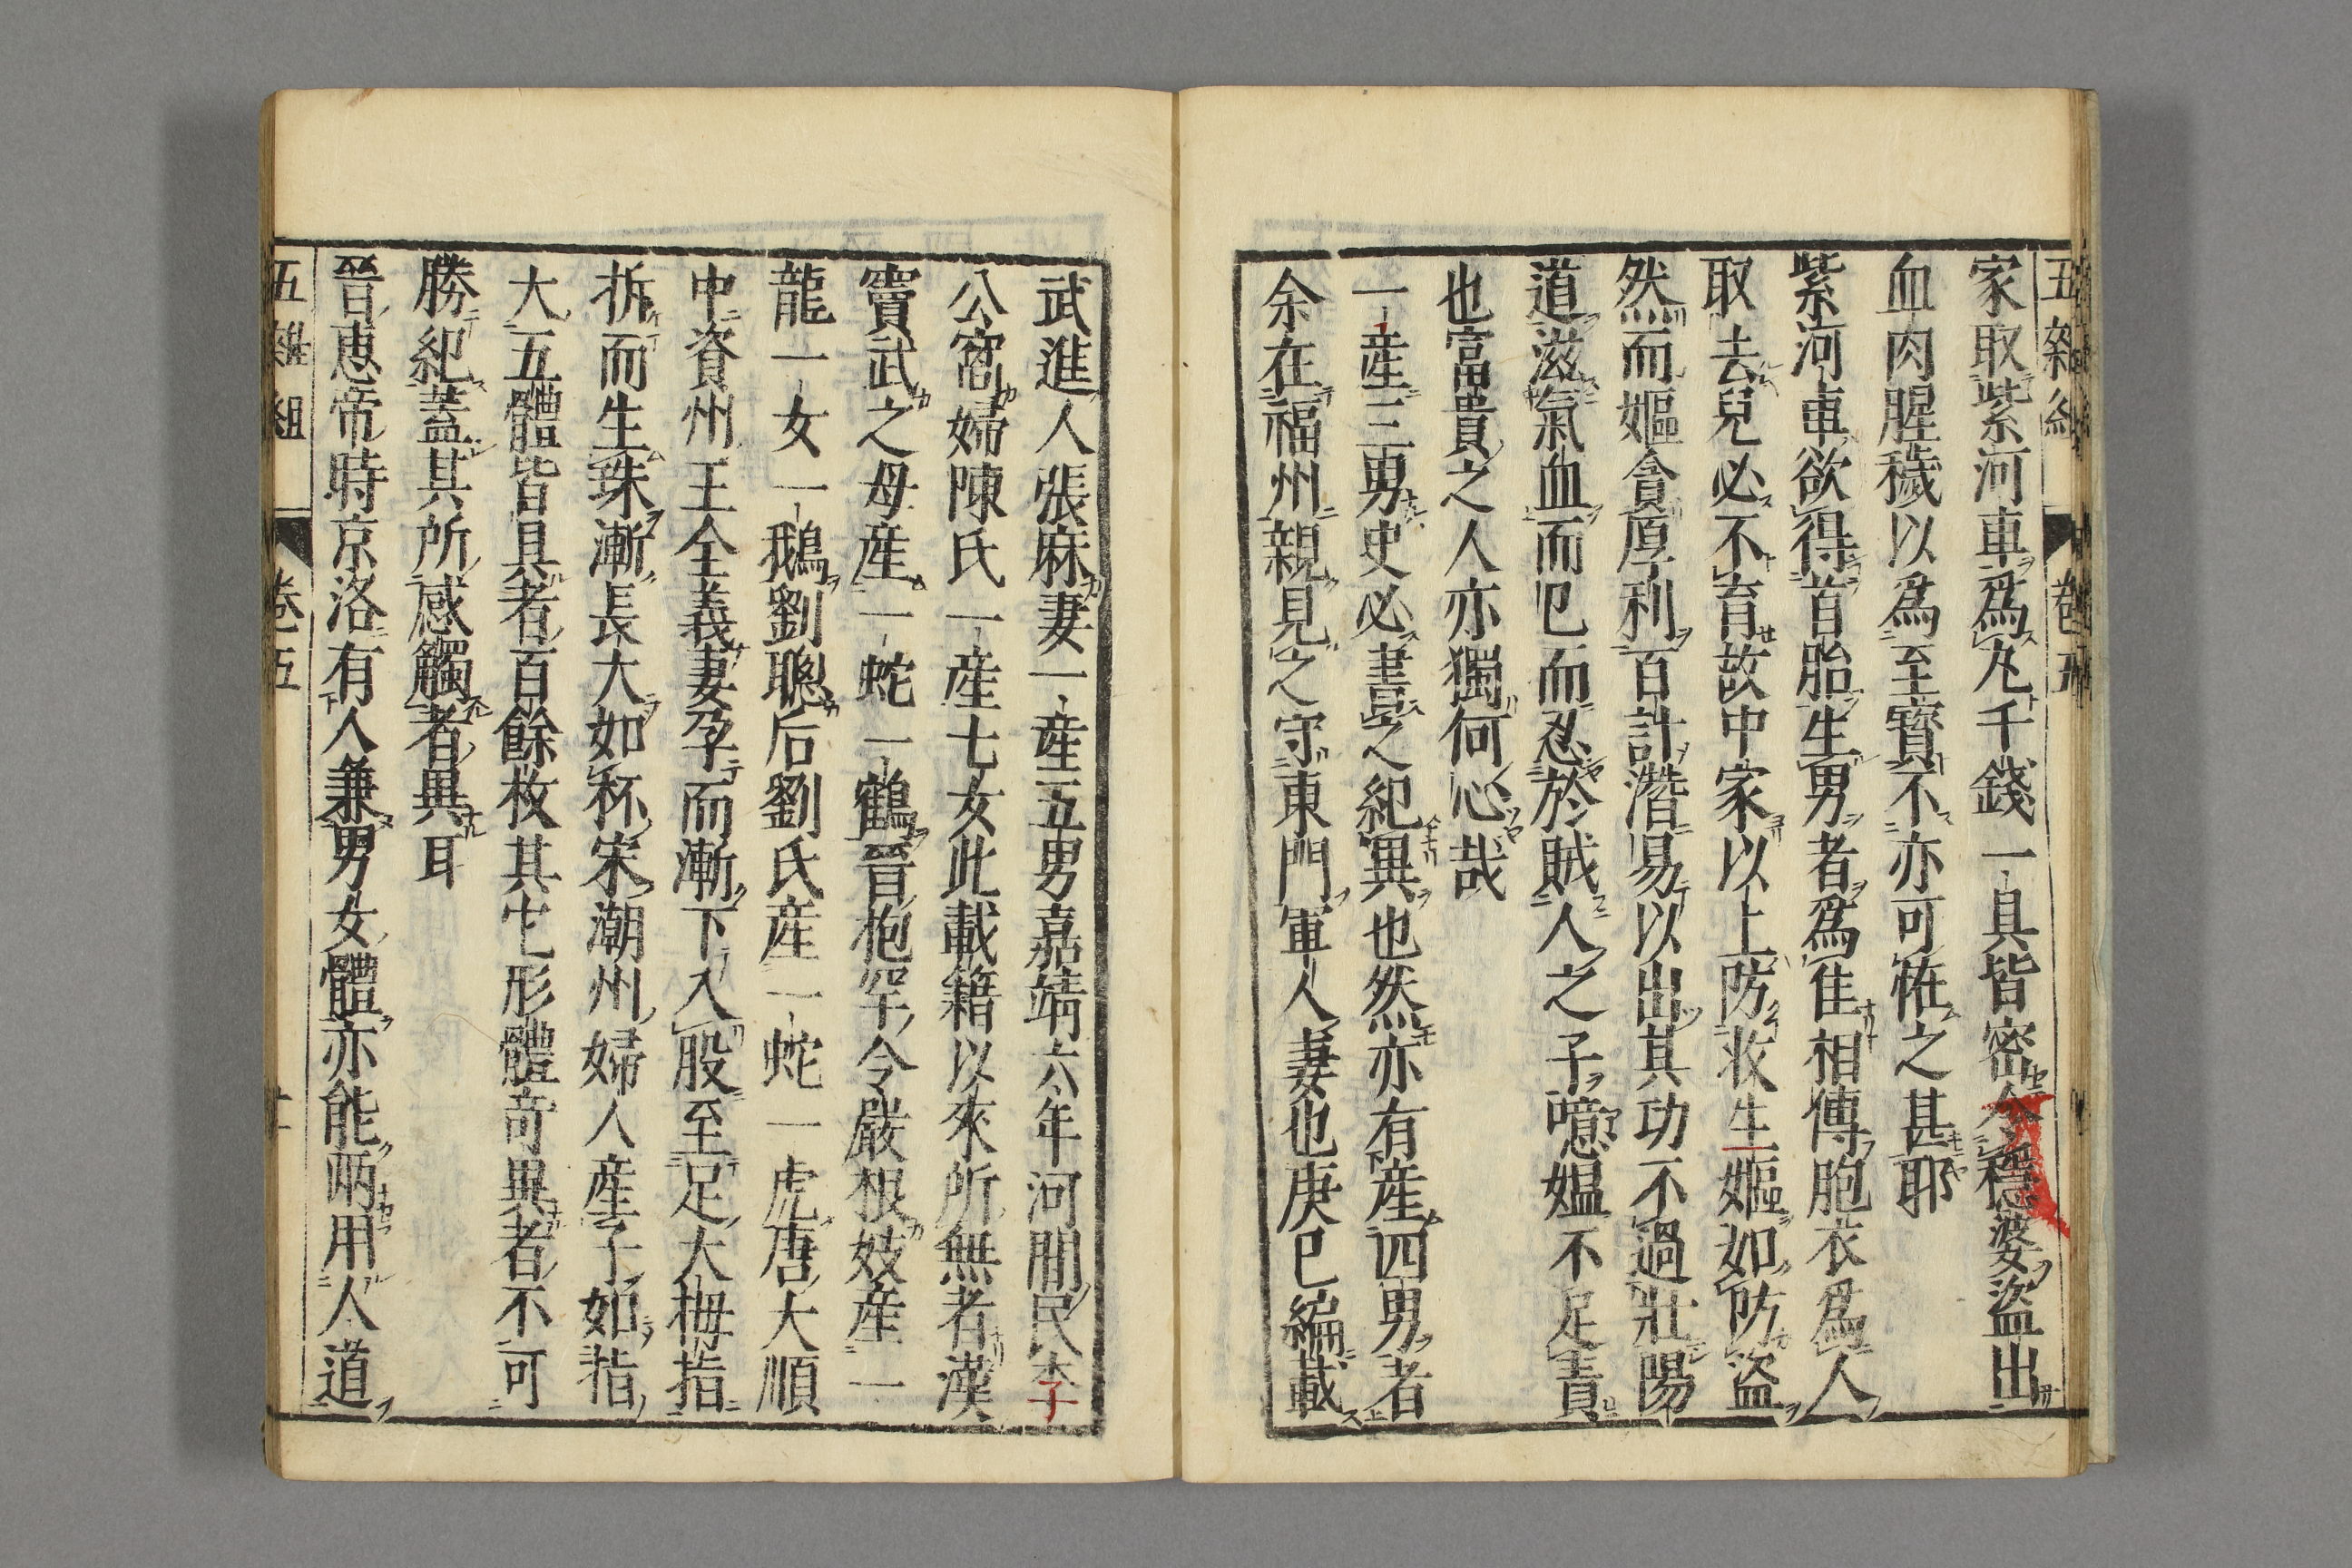 五雜組 卷五
家取紫河車爲丸千錢一具皆密令穩婆盜出
血肉腥穢以爲至寶不亦可恠之甚耶
紫河車欲得首胎生男者爲佳相傳胞衣爲人
取去兒必不育故中家以上防收生嫗如防盜
然而嫗貪厚利百計潛易以出其功不過壯陽
道滋氣血而已而忍於賊人之子噫媼不足責
也富貴之人亦獨何心哉
一產三男史必書之紀異也然亦有產四男者
余在福州親見之守東門軍人妻也庚巳編載
武進人張麻妻一產五男嘉靖六年河間民李
公窩婦陳氏一產七女此載籍以來所無者漢
竇武之母產一蛇一鶴晉枹罕令嚴根妓產一
龍一女一鵝劉聰后劉氏產一蛇一虎唐大順
中資州王全義妻孕而漸下入股至足大拇指
拆而生珠漸長大如杯宋潮州婦人產子如指
大五體皆具者百餘枚其它形體奇異者不可
勝紀蓋其所感觸者異耳
晉惠帝時京洛有人兼男女體亦能兩用人道
五雜組 卷五